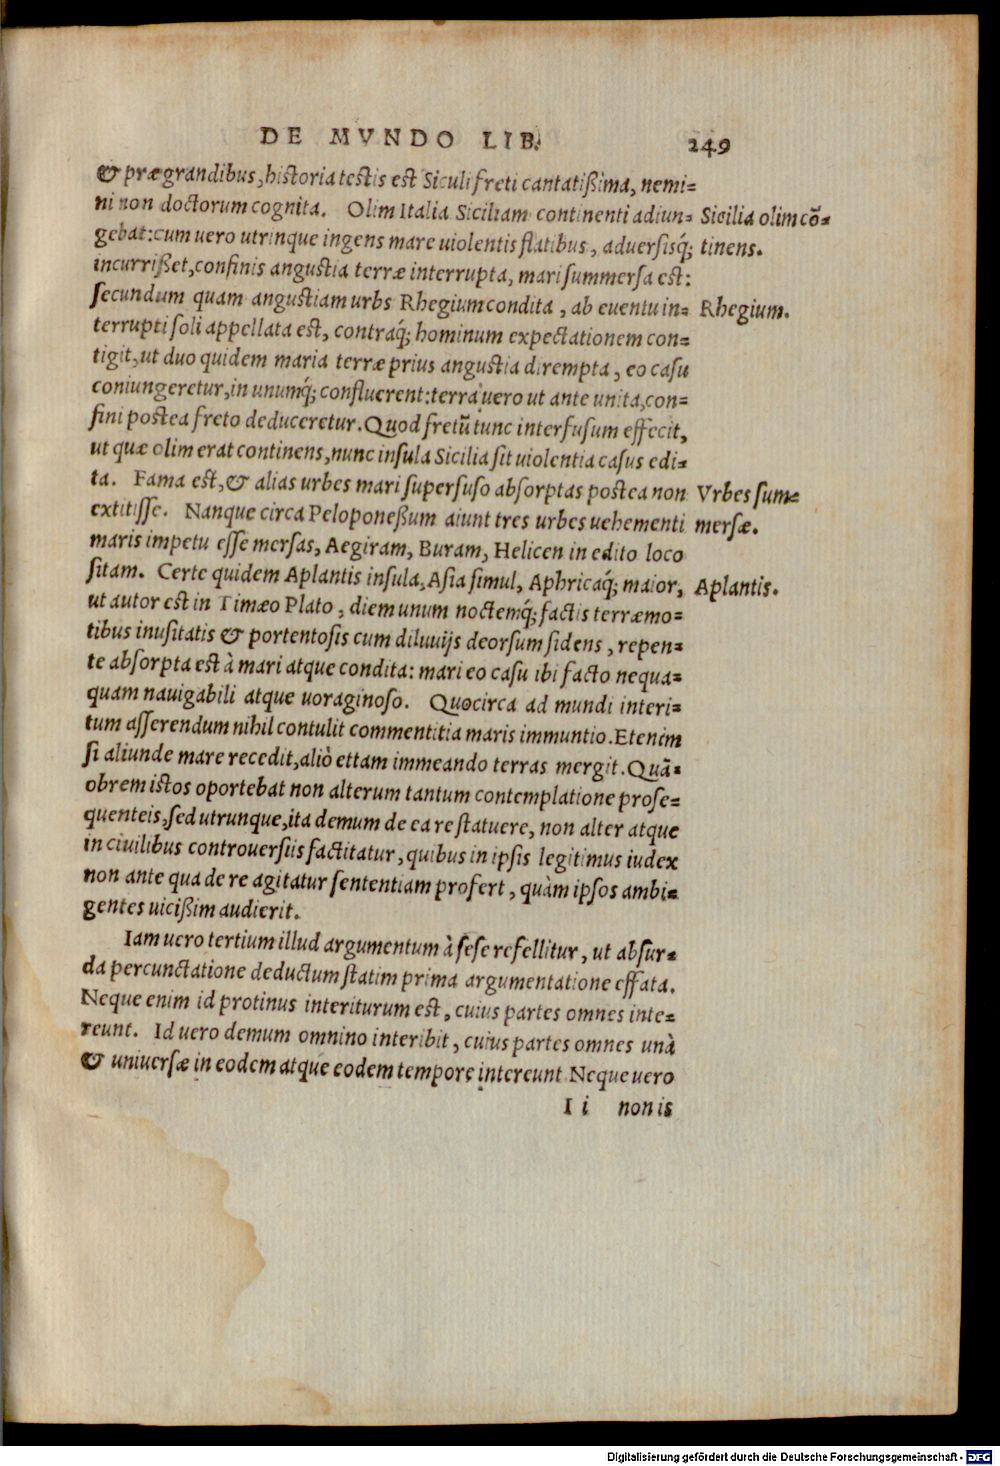 DE MVNDO LIB. 249
& prægrandibus, historia testis est Siculi freti cantatißima, nemi=
ni non doctorum cognita. Olim Italia Siciliam continenti adiun= Sicilia olim cō=
gebat: cum uero utrinque ingens mare uiolentis flatibus, aduersisq́; tinens.
incurrißet, confinis angustia terræ interrupta, mari summersa est:
secundum quam angustiam urbs Rhegium condita, ab euentu in= Rhegium.
terrupti soli appellata est, contraq́; hominum expectationem con=
tigit, ut duo quidem maria terræ prius angustia dirempta, eo casu
coniungeretur, in unumq́; confluerent: terra uero ut ante unita, con=
fini postea freto deduceretur. Quod fretū tunc interfusum effecit,
ut quæ olim erat continens, nunc insula Sicilia sit uiolentia casus edi=
ta. Fama est, & alias urbes mari superfuso absorptas postea non Vrbes sum=
extitisse. Nanque circa Peloponeßum aiunt tres urbes uehementi mersæ.
maris impetu esse mersas, Aegiram, Buram, Helicen in edito loco
sitam. Certe quidem Aplantis insula, Asia simul, Aphricaq́; maior, Aplantis.
ut autor est in Timæo Plato, diem unum noctemq́; factis terræmo=
tibus inusitatis & portentosis cum diluuijs deorsum sidens, repen=
te absorpta est à mari atque condita: mari eo casu ibi facto nequa=
quam nauigabili atque uoraginoso. Quocirca ad mundi interi=
tum asserendum nihil contulit commentitia maris immuntio. Etenim
si aliunde mare recedit, aliò ettam immeando terras mergit. Quā=
obrem istos oportebat non alterum tantum contemplatione prose=
quenteis, sed utrunque, ita demum de ea re statuere, non alter atque
in ciuilibus controuersiis factitatur, quibus in ipsis legitimus iudex
non ante qua de re agitatur sententiam profert, quàm ipsos ambi=
gentes uicißim audierit.
Iam uero tertium illud argumentum à sese refellitur, ut absur=
da percunctatione deductum statim prima argumentatione effata.
Neque enim id protinus interiturum est, cuius partes omnes inte=
reunt. Id uero demum omnino interibit, cuius partes omnes unà
& uniuersæ in eodem atque eodem tempore intereunt Neque uero
I i non is
Digitalisierung gefördert durch die Deutsche Forschungsgemeinschaft - DFG